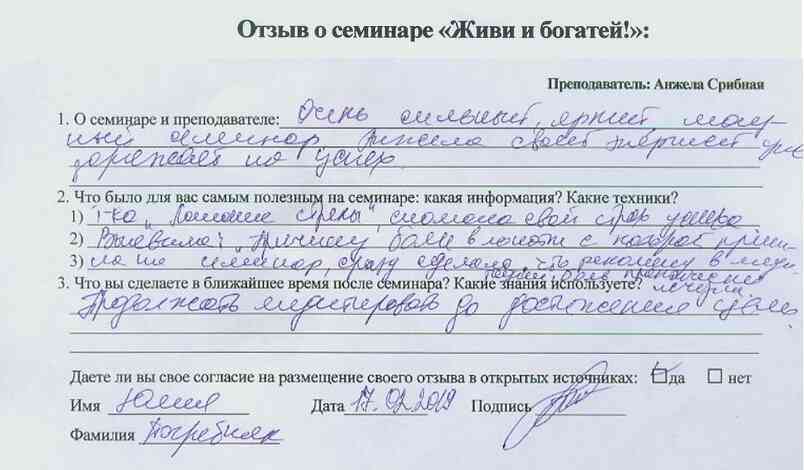 Отзыв о семинаре «Живи и богатей!»:
Преподаватель: Анжела Срибная
1. О семинаре и преподавателе: Очень сильный, яркий мощ-
ный семинар Анжела своей энергией
заряжает на успех.
2. Что было для вас самым полезным на семинаре: какая информация? Какие техники?
1) т-ка „Ломание стрелы", сломала свой страх успеха
2) Выявила причину боли в локоти с которой приш-
3) ла на семинар, сразу сделала
3. Что вы сделаете в ближайшее время после семинара? Какие знания используете?
Продолжать медитировать до достижения цели
Даете ли вы свое согласие на размещение своего отзыва в открытых источниках: да нет
Имя Юлия Дата 17.02.2019 Подпись
Фамилия Погребняк